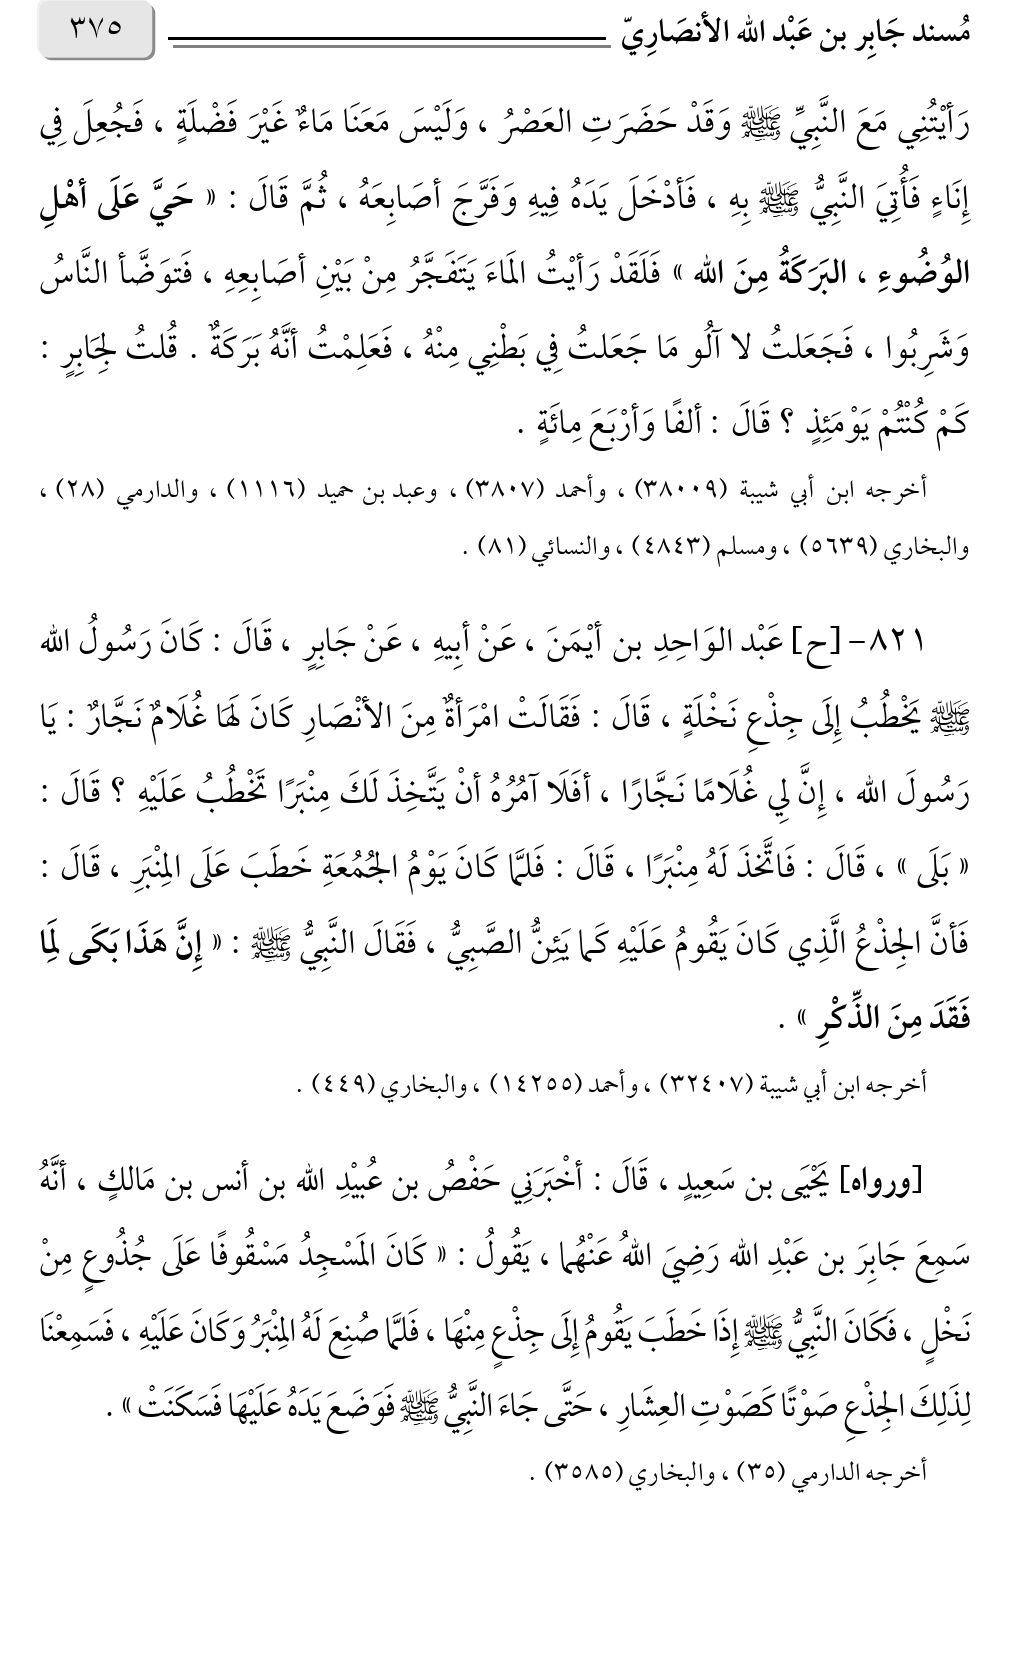 مُسند جَابِر بن عَبْد الله الأنصَارِيّ ٣٧٥
رَأَيْتُنِي مَعَ النَّبِيِّ ﷺ وَقَدْ حَضَرَتِ العَصْرُ ، وَلَيْسَ مَعَنَا مَاءٌ غَيْرَ فَضْلَةٍ ، فَجُعِلَ فِي
إِنَاءٍ فَأُتِيَ النَّبِيُّ ﷺ بِهِ ، فَأدْخَلَ يَدَهُ فِيهِ وَفَرَّجَ أصَابِعَهُ ، ثُمَّ قَالَ : « حَيَّ عَلَى أهْلِ
الوُضُوءِ ، البَرَكَةُ مِنَ الله » فَلَقَدْ رَأيْتُ المَاءَ يَتَفَجَّرُ مِنْ بَيْنِ أصَابِعِهِ ، فَتوَضَّأ النَّاسُ
وَشَرِبُوا ، فَجَعَلتُ لا آلُو مَا جَعَلتُ فِي بَطْنِي مِنْهُ ، فَعَلِمْتُ أنَّهُ بَرَكَةٌ . قُلتُ لِجَابِرٍ :
كَمْ كُنْتُمْ يَوْمَئِذٍ ؟ قَالَ : ألفًا وَأرْبَعَ مِائَةٍ .
أخرجه ابن أبي شيبة (٣٨٠٠٩) ، وأحمد (٣٨٠٧) ، وعبد بن حميد (١١١٦) ، والدارمي (٢٨) ،
والبخاري (٥٦٣٩) ، ومسلم (٤٨٤٣) ، والنسائي (٨١) .
٨٢١- [ح] عَبْد الوَاحِدِ بن أيْمَنَ ، عَنْ أبِيهِ ، عَنْ جَابِرٍ ، قَالَ : كَانَ رَسُولُ الله
ﷺ يَخْطُبُ إِلَى جِذْعِ نَخْلَةٍ ، قَالَ : فَقَالَتْ امْرَأةٌ مِنَ الأنْصَارِ كَانَ لَهَا غُلَامٌ نَجَّارٌ : يَا
رَسُولَ الله ، إِنَّ لِي غُلَامًا نَجَّارًا ، أفَلَا آمُرُهُ أنْ يَتَّخِذَ لَكَ مِنْبَرًا تَخْطُبُ عَلَيْهِ ؟ قَالَ :
« بَلَى » ، قَالَ : فَاتَّخَذَ لَهُ مِنْبَرًا ، قَالَ : فَلَمَّا كَانَ يَوْمُ الجُمُعَةِ خَطَبَ عَلَى المِنْبَرِ ، قَالَ :
فَأنَّ الجِذْعُ الَّذِي كَانَ يَقُومُ عَلَيْهِ كَمَا يَئِنُّ الصَّبِيُّ ، فَقَالَ النَّبِيُّ ﷺ : « إِنَّ هَذَا بَكَى لِمَا
فَقَدَ مِنَ الذِّكْرِ » .
أخرجه ابن أبي شيبة (٣٢٤٠٧) ، وأحمد (١٤٢٥٥) ، والبخاري (٤٤٩) .
[ورواه] يَحْيَى بن سَعِيدٍ ، قَالَ : أخْبَرَنِي حَفْصُ بن عُبيْدِ الله بن أنس بن مَالكٍ ، أنَّهُ
سَمِعَ جَابِرَ بن عَبْدِ الله رَضِيَ اللهُ عَنْهُما ، يَقُولُ : « كَانَ المَسْجِدُ مَسْقُوفًا عَلَى جُذُوعٍ مِنْ
نَخْلٍ ، فَكَانَ النَّبِيُّ ﷺ إِذَا خَطَبَ يَقُومُ إِلَى جِذْعٍ مِنْهَا ، فَلَمَّا صُنِعَ لَهُ المِنْبَرُ وَكَانَ عَلَيْهِ ، فَسَمِعْنَا
لِذَلِكَ الجِذْعِ صَوْتًا كَصَوْتِ العِشَارِ ، حَتَّى جَاءَ النَّبِيُّ ﷺ فَوَضَعَ يَدَهُ عَلَيْهَا فَسَكَنَتْ » .
أخرجه الدارمي (٣٥) ، والبخاري (٣٥٨٥) .